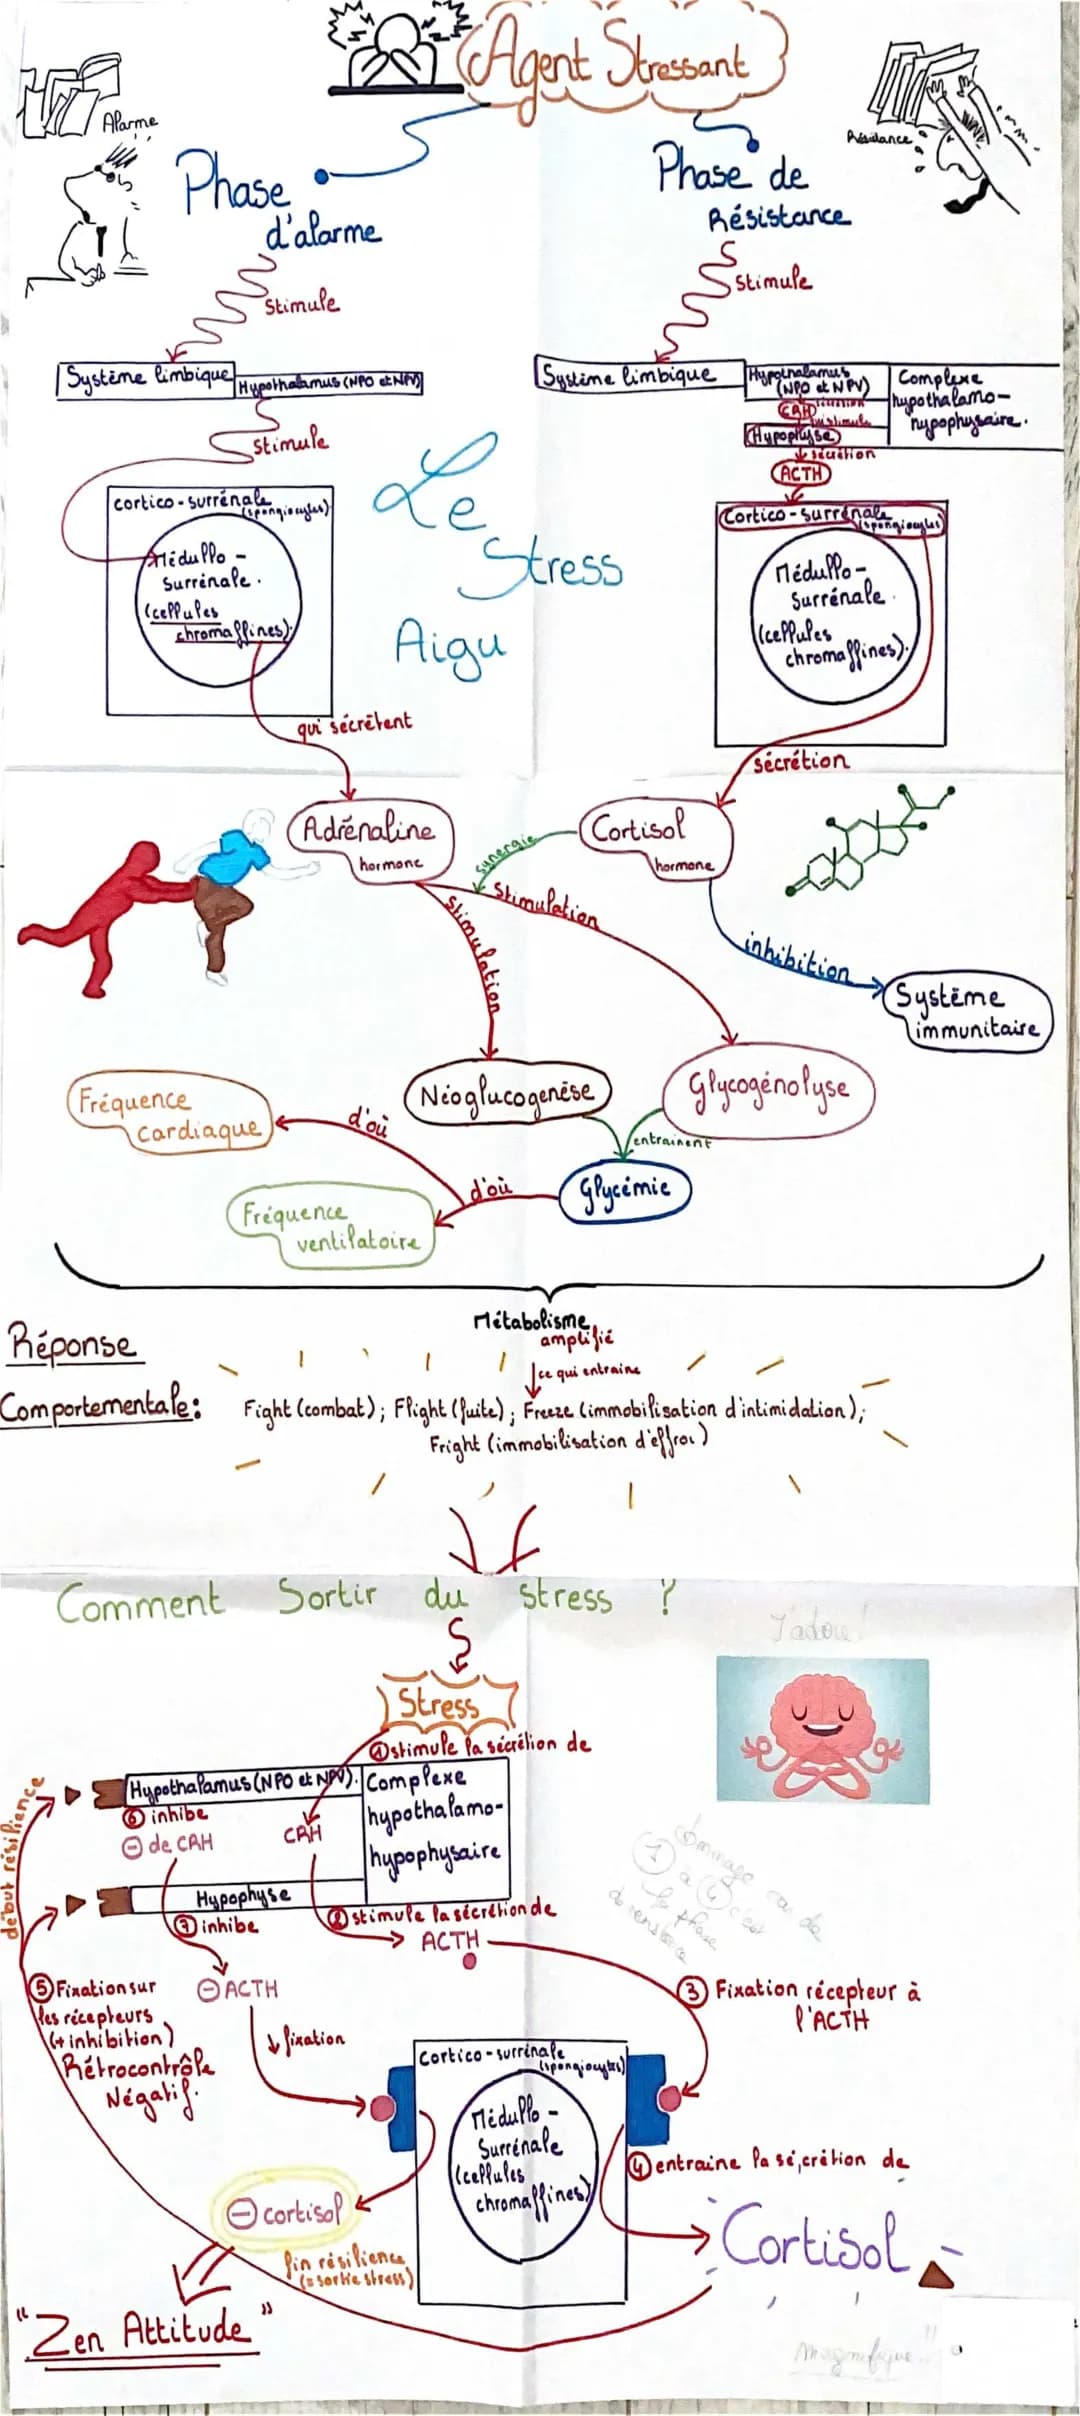 Agent Stressant
Alarme
Résistance
Phase
d'alarme
Phase de
Résistance
Stimule
Stimule
Système limbique
Hypothalamus (NPO et NPV)
Système limbique
Hypothalamus
(NPO et NPV)
CRH
Hypophyse
sécrétion
ACTH
Complexe
hypothalamo-
hypophysaire.
Stimule
cortico-surrénale
(spongiocytes)
Médullo-
Surrénale.
(cellules
chromaffines).
Le
Stress
Aigu
Cortico-surrénale
(spongiocytes)
Médullo-
Surrénale.
(cellules
chromaffines).
qui sécrètent
sécrétion
Adrénaline
hormone
synergie
Cortisol
hormone
Stimulation
Stimulation
inhibition
Système
immunitaire
Fréquence
cardiaque
d'où
Néoglucogenèse
Glycogénolyse
entrainent
Fréquence
ventilatoire
d'où
Glycémie
Métabolisme
amplifié
ce qui entraine
Réponse
Comportementale:
Fight (combat); Flight (fuite); Freeze (immobilisation d'intimidation);
Fright (immobilisation d'effroi)
Comment Sortir du stress ?
J'adore!
Stress
① stimule la sécrétion de
début résilience
Hypothalamus (NPO et NPV).
Complexe
hypothalamo-
hypophysaire
⑥ inhibe
⊖ de CRH
CRH
Hypophyse
⑦ inhibe
② stimule la sécrétion de
ACTH
⊖ ACTH
⑤ Fixation sur
les récepteurs
(+ inhibition)
Rétrocontrôle
Négatif.
↓ fixation
③ Fixation récepteur à
l'ACTH
Cortico-surrénale
(spongiocytes)
Médullo-
Surrénale
(cellules
chromaffines)
④ entraine la sécrétion de
Cortisol
⊖ cortisol
fin résilience
(= sortie stress)
"Zen Attitude"
Magnifique!!